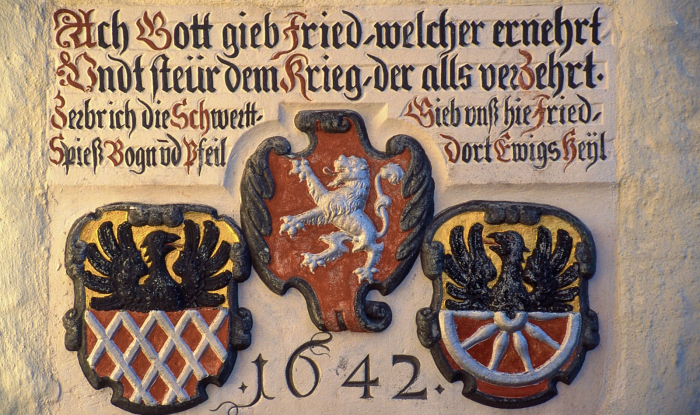 Ach Gott gieb Fried, welcher ernehrt
Vndt steür dem Krieg, der alls verZehrt.
Zerbrich die Schwertt,
Spieß Bogn vd Pfeil
Gieb vnß hie Fried,
dort Ewigs Heÿl
.1642.